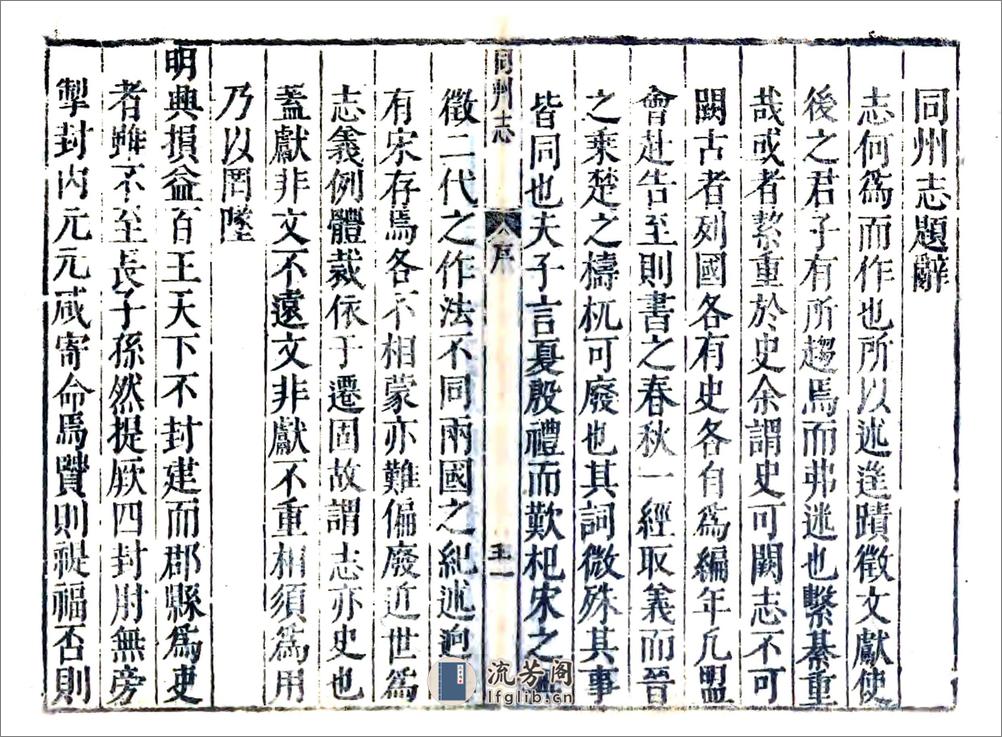 同州志題辭
志何為而作也所以述逹蹟徵文獻使
後之君子有所趨焉而弗迷也繫綦重
哉或者絜重於史余謂史可闕志不可
闕古者列國各有史各自為編年凡盟
會赴告至則書之春秋一經取義而晉
之乗楚之檮杌可廢也其詞微殊其事
皆同也夫子言夏殷禮而歎杞宋之
徵二代之作法不同兩國之紀述迥
有宋存焉各不相蒙亦難偏廢近世為
志義例體裁依于遷固故謂志亦史也
蓋獻非文不遠文非獻不重相須為用
乃以罔墜
明典損益百王天下不封建而郡縣為吏
者雖不至長子孫然提厥四封肘無旁
掣封内元元咸寄命焉賢則禔福否則
同州志
序
流芳阁
lfglib.cn